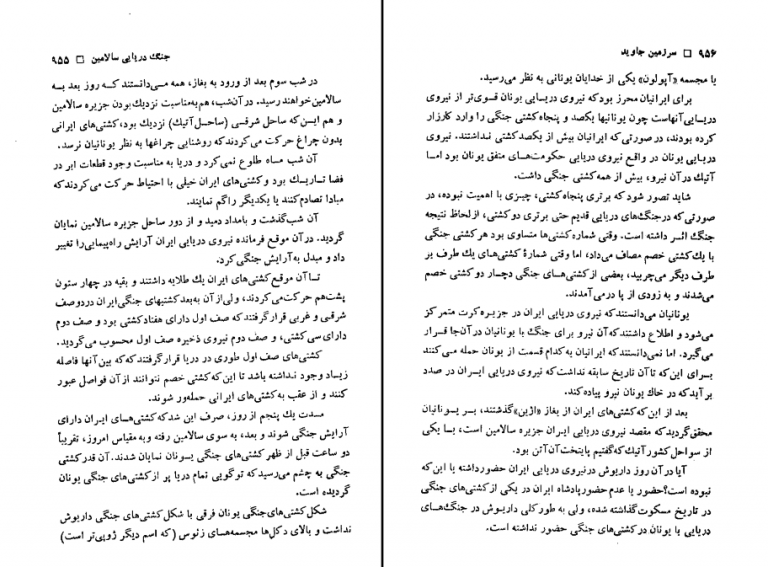 جنگ دریایی سالامین □ ۹۵۵
در شب سوم بعد از ورود به بغاز، همه می‌دانستند که روز بعد به
سالامین خواهند رسید. در آن شب، هم به مناسبت نزدیک بودن جزیره سالامین
و هم این که ساحل شرقی (ساحل آتیک) نزدیک بود، کشتی‌های ایرانی
بدون چراغ حرکت می‌کردند که روشنایی چراغها به نظر یونانیان نرسد.
آن شب ماه طلوع نمی‌کرد و دریا به مناسبت وجود قطعات ابر در
فضا تاریک بود و کشتی‌های ایران خیلی با احتیاط حرکت می‌کردند که
مبادا تصادم کنند یا یکدیگر را گم نمایند.
آن شب گذشت و بامداد دمید و از دور ساحل جزیره سالامین نمایان
گردید. در آن موقع فرمانده نیروی دریایی ایران آرایش راه‌پیمایی را تغییر
داد و مبدل به آرایش جنگی کرد.
تا آن موقع کشتی‌های ایران یك طلایه داشتند و بقیه در چهار ستون
پشت هم حرکت می‌کردند، ولی از آن به بعد کشتیهای جنگی ایران در دو صف
شرقی و غربی قرار گرفتند که صف اول دارای هفتاد کشتی بود و صف دوم
دارای سی کشتی، و صف دوم نیروی ذخیره صف اول محسوب می‌گردید.
کشتی‌های صف اول طوری در دریا قرار گرفتند که که بین آنها فاصله
زیاد وجود نداشته باشد تا این که کشتی خصم نتوانند از آن فواصل عبور
کنند و از عقب به کشتی‌های ایرانی حمله‌ور شوند.
مدت یك پنجم از روز، صرف این شد که کشتی‌های ایران دارای
آرایش جنگی شوند و بعد، به سوی سالامین رفته و به مقیاس امروز، تقریباً
دو ساعت قبل از ظهر کشتی‌های یونان نمایان شدند. آن قدر کشتی
جنگی به چشم می‌رسید که تو گویی تمام دریا پر از کشتی‌های جنگی یونان
گردیده است.
شکل کشتی‌های جنگی یونان فرقی با شکل کشتی‌های جنگی داریوش
نداشت و بالای دکل‌ها مجسمه‌های زئوس (که اسم دیگر ژوپی‌تر است)
۹۵۶ □ سرزمین جاوید
یا مجسمه «آپولون» یکی از خدایان یونانی به نظر می‌رسید.
برای ایرانیان محرز بود که نیروی دریایی یونان قوی‌تر از نیروی
دریایی آنهاست چون یونانیها یکصد و پنجاه کشتی جنگی را وارد کارزار
کرده بودند، در صورتی که ایرانیان بیش از یکصد کشتی نداشتند. نیروی
دریایی یونان در واقع نیروی دریایی حکومت‌های متفق یونان بود اما
آتیك در آن نیرو، بیش از همه کشتی جنگی داشت.
شاید تصور شود که برتری پنجاه کشتی، چیزی با اهمیت نبوده، در
صورتی که در جنگ‌های دریایی قدیم حتی برتری دو کشتی، از لحاظ نتیجه
جنگ اثر داشته است. وقتی شماره کشتی‌ها متساوی بود هر کشتی جنگی
با یك کشتی خصم مصاف می‌داد، اما وقتی شمارهٔ کشتی‌های یك طرف بر
طرف دیگر می‌چربید، بعضی از کشتی‌های جنگی دچار دو کشتی خصم
می‌شدند و به زودی از پا در می‌آمدند.
یونانیان می‌دانستند که نیروی دریایی ایران در جزیره کرت متمرکز
می‌شود و اطلاع داشتند که آن نیرو برای جنگ با یونانیان در آن جا قرار
می‌گیرد. اما نمی‌دانستند که ایرانیان به کدام قسمت از یونان حمله می‌کنند
برای این که تا آن تاریخ سابقه نداشت که نیروی دریایی ایران در صدد
بر آید که در خاك یونان نیرو پیاده کند.
بعد از این که کشتی‌های ایران از بغاز «اژین» گذشتند، بر یونانیان
محقق گردید که مقصد نیروی دریایی ایران جزیره سالامین است، یا یکی
از سواحل کشور آتیك که گفتیم پایتخت آن آتن بود.
آیا در آن روز داریوش در نیروی دریایی ایران حضور داشته یا این که
نبوده است؟ حضور یا عدم حضور پادشاه ایران در یکی از کشتی‌های جنگی
در تاریخ مسکوت گذاشته شده، ولی به طور کلی داریوش در جنگ‌های
دریایی با یونان در کشتی‌های جنگی حضور نداشته است.